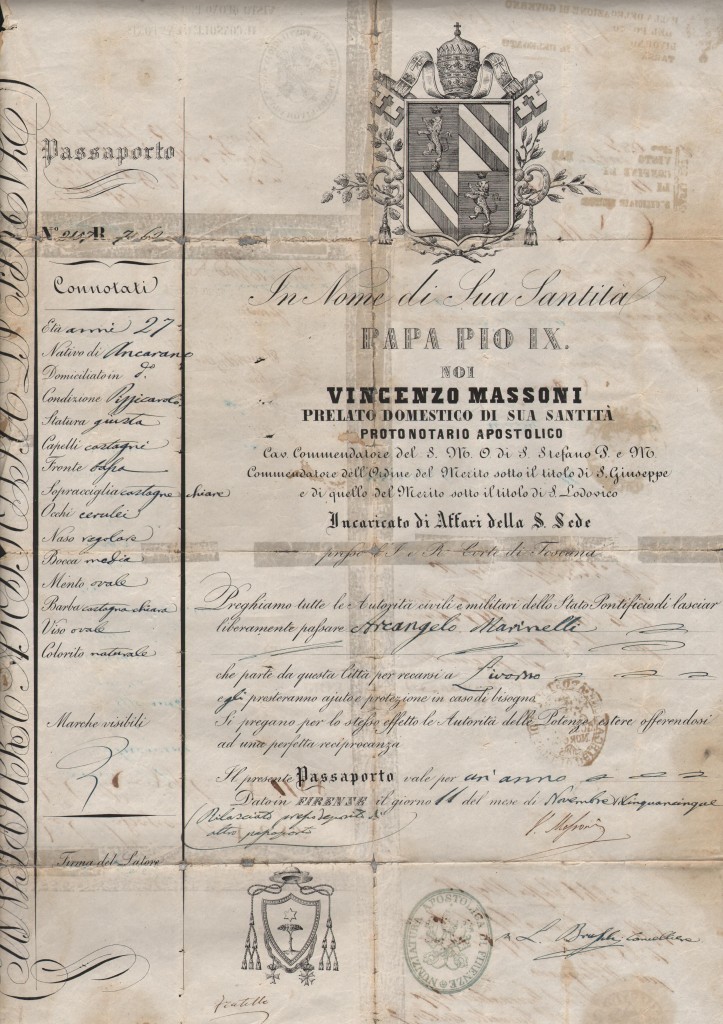 Passaporto
Connotati
Età anni 27
Nativo di Ancarano
Domiciliato in d.º
Condizione Pizzicarolo
Statura giusta
Capelli castagni
Fronte
Sopracciglia castagne chiare
Occhi cerulei
Naso regolare
Bocca media
Mento ovale
Barba castagna chiara
Viso ovale
Colorito naturale
Marche visibili
Firma del Latore
In Nome di Sua Santità
PAPA PIO IX.
NOI
VINCENZO MASSONI
PRELATO DOMESTICO DI SUA SANTITÀ
PROTONOTARIO APOSTOLICO
Cav. Commendatore del S. M. O di S. Stefano P. e M.
Commendatore dell'Ordine del Merito sotto il titolo di S. Giuseppe
e di quello del Merito sotto il titolo di S. Lodovico
Incaricato di Affari della S. Sede
presso l'I. e R. Corte di Toscana
Preghiamo tutte le Autorità civili e militari dello Stato Pontificio di lasciar
liberamente passare Arcangelo Marinelli
che parte da questa Città per recarsi a Livorno
e gli presteranno ajuto e protezione in caso di bisogno.
Si pregano per lo stesso effetto le Autorità delle Potenze estere offerendosi
ad una perfetta reciprocanza
Il presente Passaporto vale per un'anno
Dato in FIRENZE il giorno 11 del mese di Novembre
Rilasciato deposito d'
altro passaporto
V. Massoni
NUNZIATURA APOSTOLICA DI FIRENZE
Cancelliere